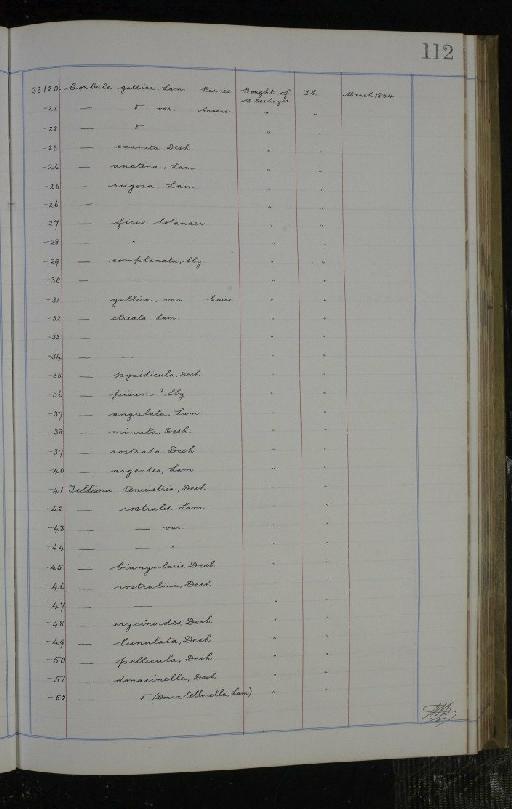 112
Corbula gallica Lam Bought of March 1884
-21 — " var "
-22 — "
-23 — exarata Desh "
-24 — anatina, Lam "
-25 — rugosa Lam "
-26 — "
-27 — ficus Solander "
-28 — " "
-29 — complanata, Sby "
-30 — "
-31 — gallica, "
-32 — striata Lam "
-33 — "
-34 — — "
-35 — Desh "
-36 — Sby "
-37 — angulata, Lam "
-38 — minuta Desh "
-39 — rostrata Desh "
-40 — argentea, Lam "
-41 Tellina tenuistria, Desh "
-42 — rostralis Lam "
-43 — — var "
-44 — — " "
-45 — biangularis Desh "
-46 — rostralina, Desh "
-47 — — "
-48 — erycinoides Desh "
-49 — lunulata, Desh "
-50 — pellicula, Desh "
-51 — donacinella, Desh "
-52 — " (Donax tellinella, Lam) "